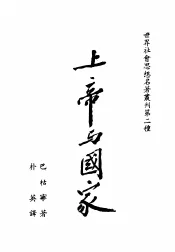 世界社會思想名著叢刊第二種
上帝与國家
巴枯寧著
朴英譯